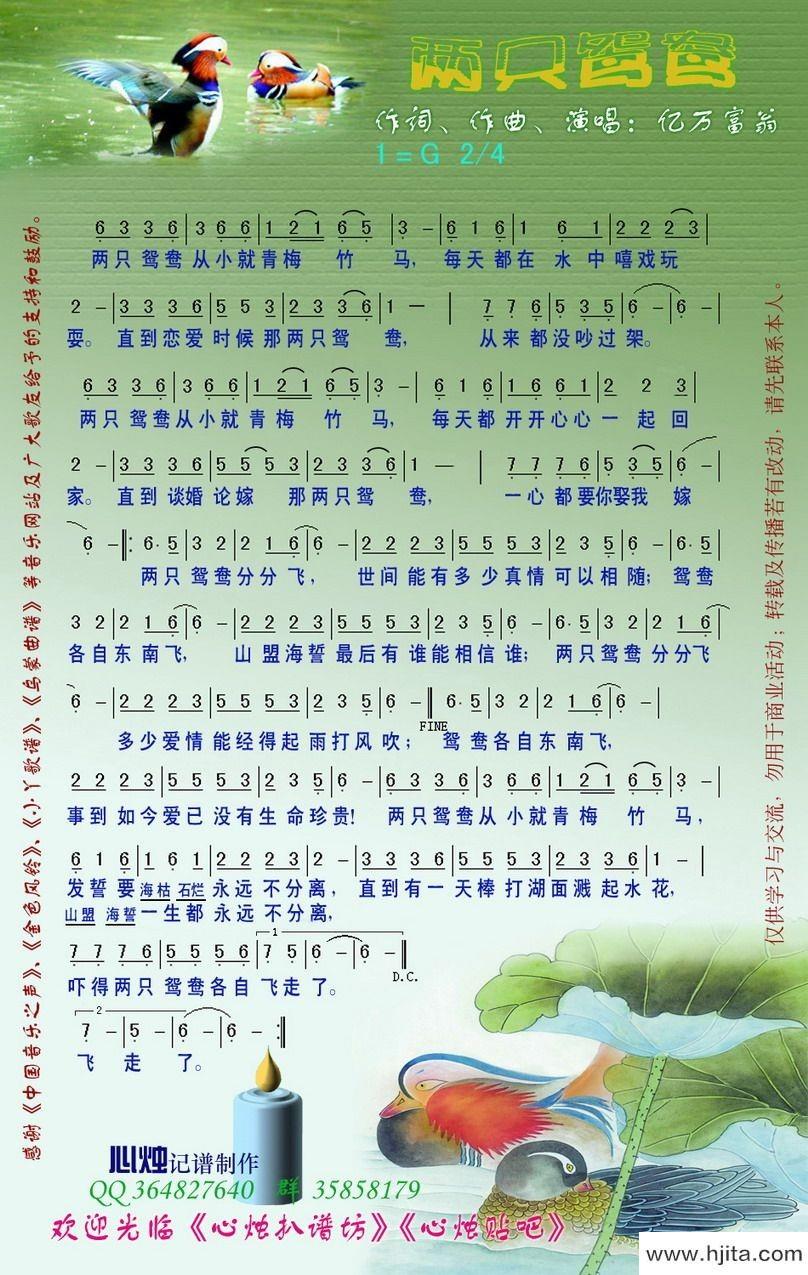 两只鸳鸯
作词、作曲、演唱：亿万富翁
1=G 2/4
6 3 3 6|3 6 6|1 2 1 6 5|3 -|6 1 6|1 6 1|2 2 2 3|
两只鸳鸯从小就青梅竹马，每天都在水中嘻戏玩
2 -|3 3 3 6|5 5 3|2 3 3 6|1 —|7 7 6|5 3 5|6 -|6 -|
耍。直到恋爱时候那两只鸳鸯，从来都没吵过架。
6 3 3 6|3 6 6|1 2 1 6 5|3 -|1 6 6 1|2 2 3|
两只鸳鸯从小就青梅竹马，每天都开开心心一起回
2 -|3 3 3 6|5 5 5 3|2 3 3 6|1 —|7 7 7 6|5 3 5|6 -
家。直到谈婚论嫁那两只鸳鸯，一心都要你娶我嫁
6 -:|6· 5|3 2|2 1 6|6 -|2 2 2 3|5 5 5 3|2 2 3 5|6 -|6· 5|
两只鸳鸯分分飞，世间能有多少真情可以相随；鸳鸯
3 2|2 1 6|6 -|2 2 2 3|5 5 5 3|2 2 3 5|6 -|6· 5|3 2|2 1 6|
各自东南飞，山盟海誓最后有谁能相信谁；两只鸳鸯分分飞
6 -|2 2 2 3|5 5 5 3|2 3 5|6 -‖6· 5|3 2|2 1 6|6 -|
FINE
多少爱情能经得起雨打风吹；鸳鸯各自东南飞，
2 2 2 3|5 5 5 3|2 2 3 5|6 -|6 3 3 6|3 6 6|1 2 1 6 5|3 -|
事到如今爱已没有生命珍贵！两只鸳鸯从小就青梅竹马，
6 1 6|6 1 6 1|2 2 2 3|2 -|3 3 3 6|5 5 5 3|2 3 3 6|1 -|
发誓要海枯石烂永远不分离，直到有一天棒打湖面溅起水花，
山盟海誓一生都永远不分离，
7 7 7 6|5 5 5 6|7 5|6 -|6 -‖
1
D.C.
吓得两只鸳鸯各自飞走了。
2
7 -|5 -|6 -|6 -:‖
飞走了。
感谢《中国音乐之声》、《金色风铃》、《小丫歌谱》、《乌蒙曲谱》等音乐网站及广大歌友给予的支持和鼓励。
仅供学习与交流，勿用于商业活动；转载及传播若有改动，请先联系本人。
心烛记谱制作
QQ 364827640 群 35858179
欢迎光临《心烛扒谱坊》《心烛贴吧》
www.hjita.com